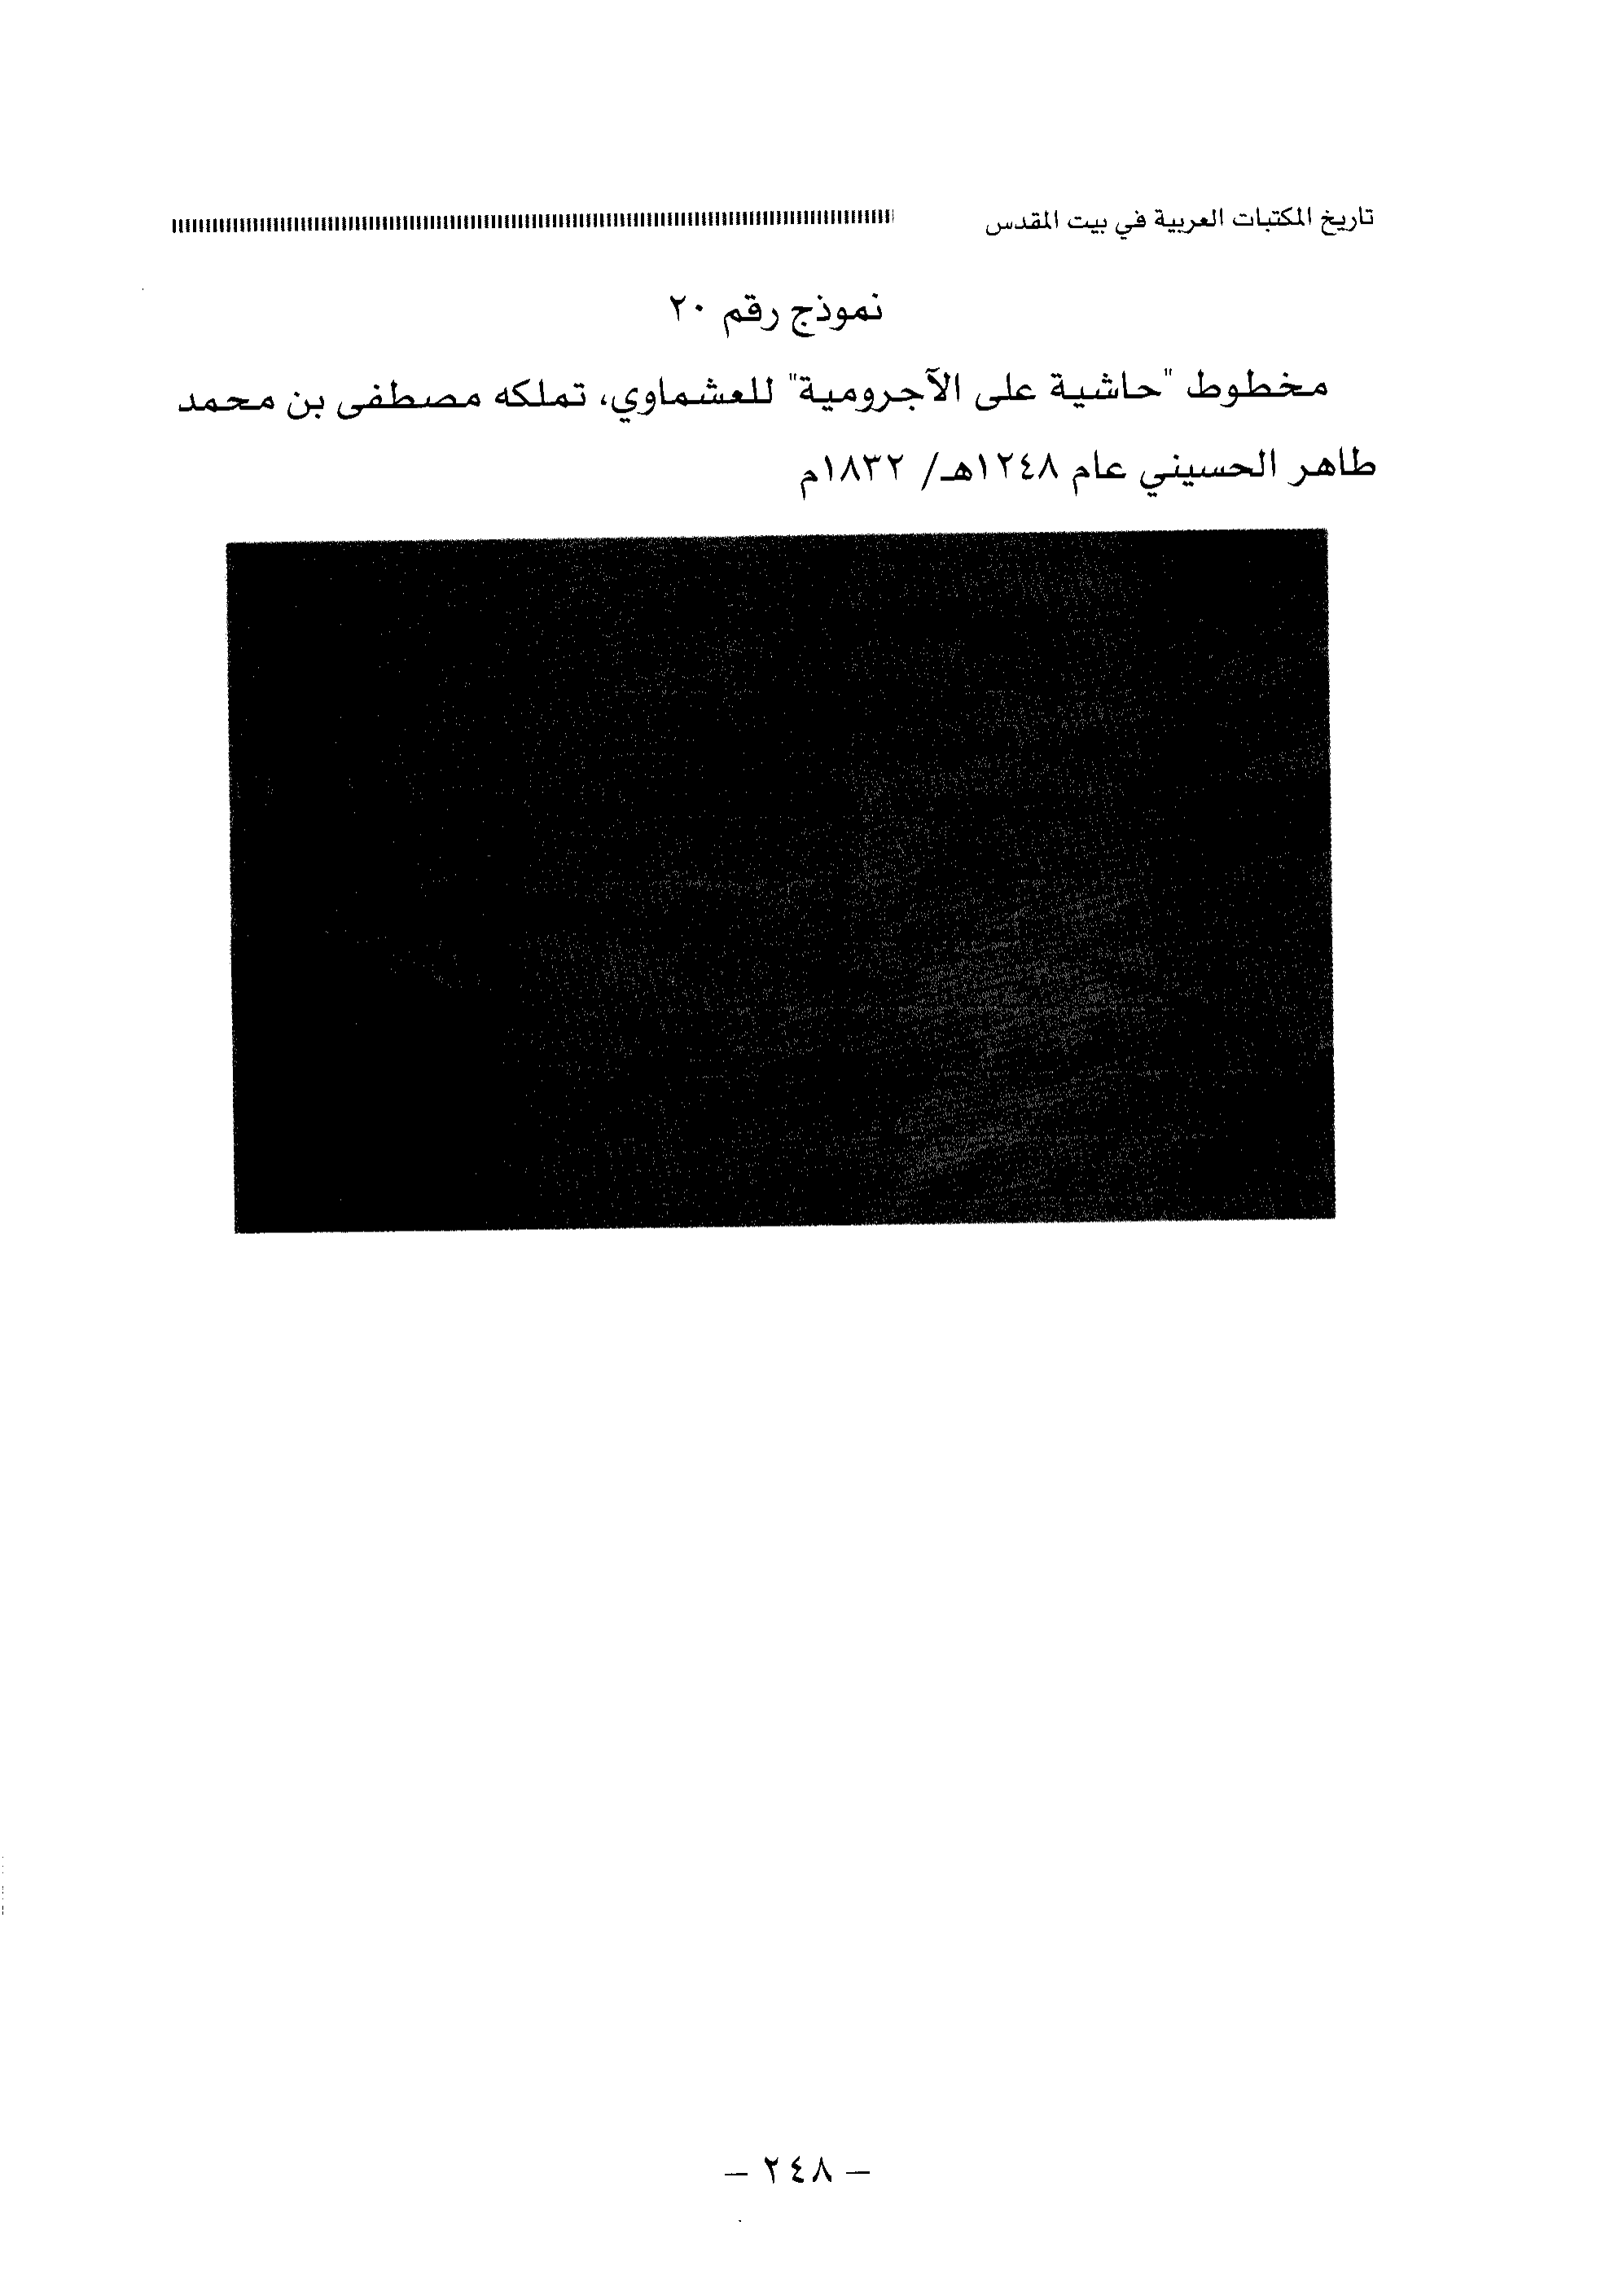 تاريخ المكتبات العربية في بيت المقدس
نموذج رقم ٢٠
مخطوط "حاشية على الآجرومية" للعشماوي، تملكه مصطفى بن محمد
طاهر الحسيني عام ١٢٤٨هـ/ ١٨٣٢م
– ٢٤٨ –